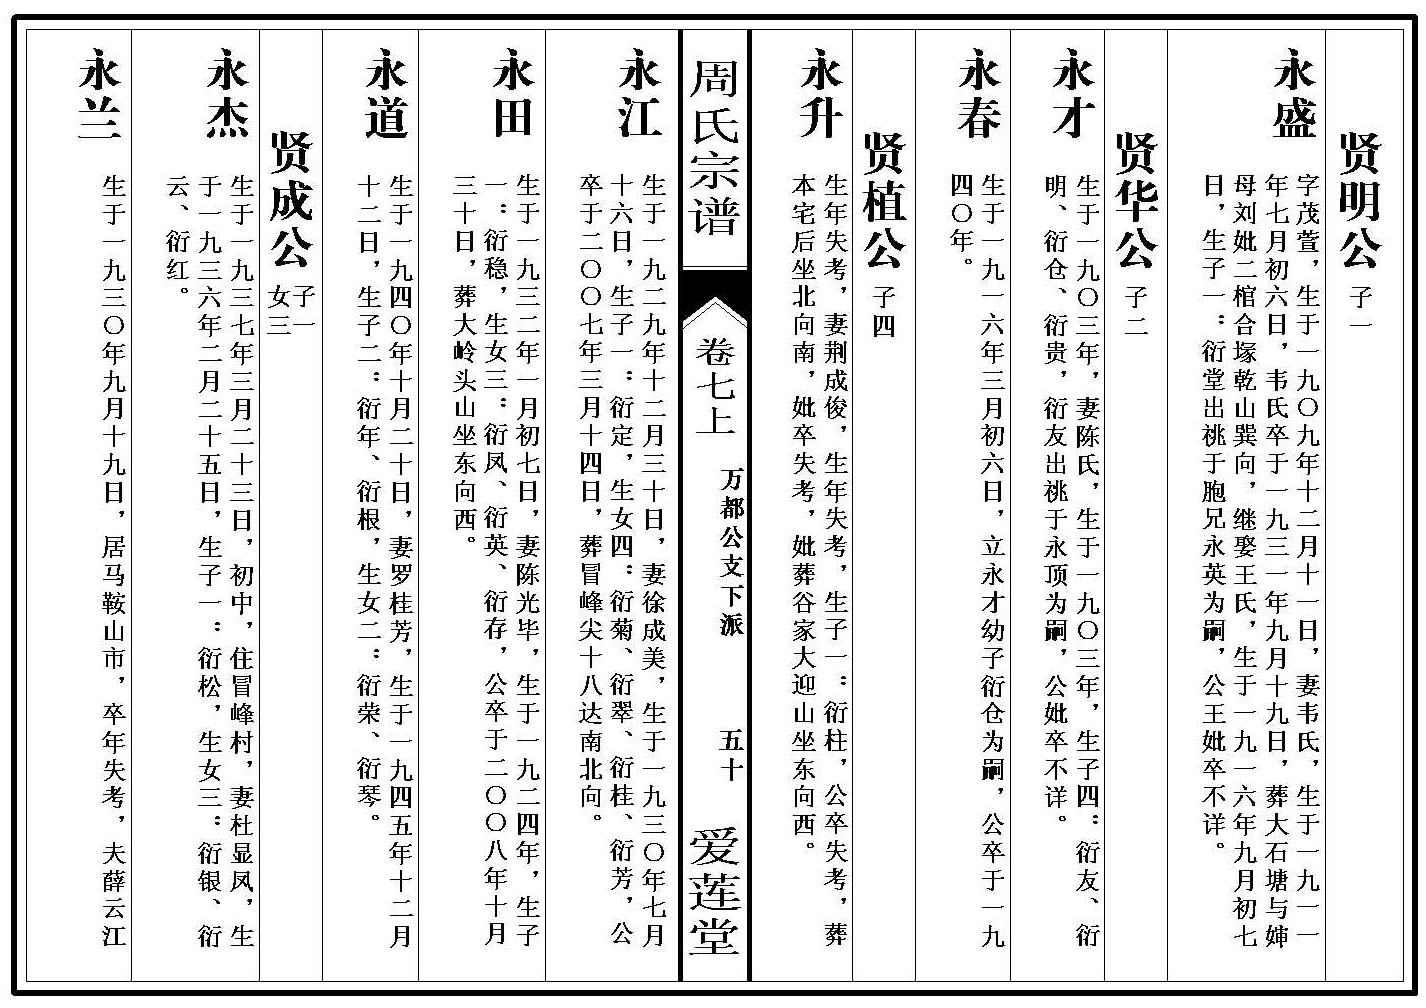 贤明公 子一
永盛
字茂萱，生于一九〇九年十二月十一日，妻韦氏，生于一九一一
年七月初六日，韦氏卒于一九三一年九月十九日，葬大石塘与婶
母刘妣二棺合塚乾山巽向，继娶王氏，生于一九一六年九月初七
日，生子一：衍堂出祧于胞兄永英为嗣，公王妣卒不详。
贤华公 子二
永才
生于一九〇三年，妻陈氏，生于一九〇三年，生子四：衍友、衍
明、衍仓、衍贵，衍友出祧于永顶为嗣，公妣卒不详。
永春
生于一九一六年三月初六日，立永才幼子衍仓为嗣，公卒于一九
四〇年。
贤植公 子四
永升
生年失考，妻荆成俊，生年失考，生子一：衍柱，公卒失考，葬
本宅后坐北向南，妣卒失考，妣葬谷家大迎山坐东向西。
周氏宗谱
卷七上
万都公支下派
五十
爱莲堂
永江
生于一九二九年十二月三十日，妻徐成美，生于一九三〇年七月
十六日，生子一：衍定，生女四：衍菊、衍翠、衍桂、衍芳，公
卒于二〇〇七年三月十四日，葬冒峰尖十八达南北向。
永田
生于一九三二年一月初七日，妻陈光毕，生于一九二四年，生子
一：衍稳，生女三：衍凤、衍英、衍存，公卒于二〇〇八年十月
三十日，葬大岭头山坐东向西。
永道
生于一九四〇年十月二十日，妻罗桂芳，生于一九四五年十二月
十二日，生子二：衍年、衍根，生女二：衍荣、衍琴。
贤成公 子一
女三
永杰
生于一九三七年三月二十三日，初中，住冒峰村，妻杜显凤，生
于一九三六年二月二十五日，生子一：衍松，生女三：衍银、衍
云、衍红。
永兰
生于一九三〇年九月十九日，居马鞍山市，卒年失考，夫薛云江